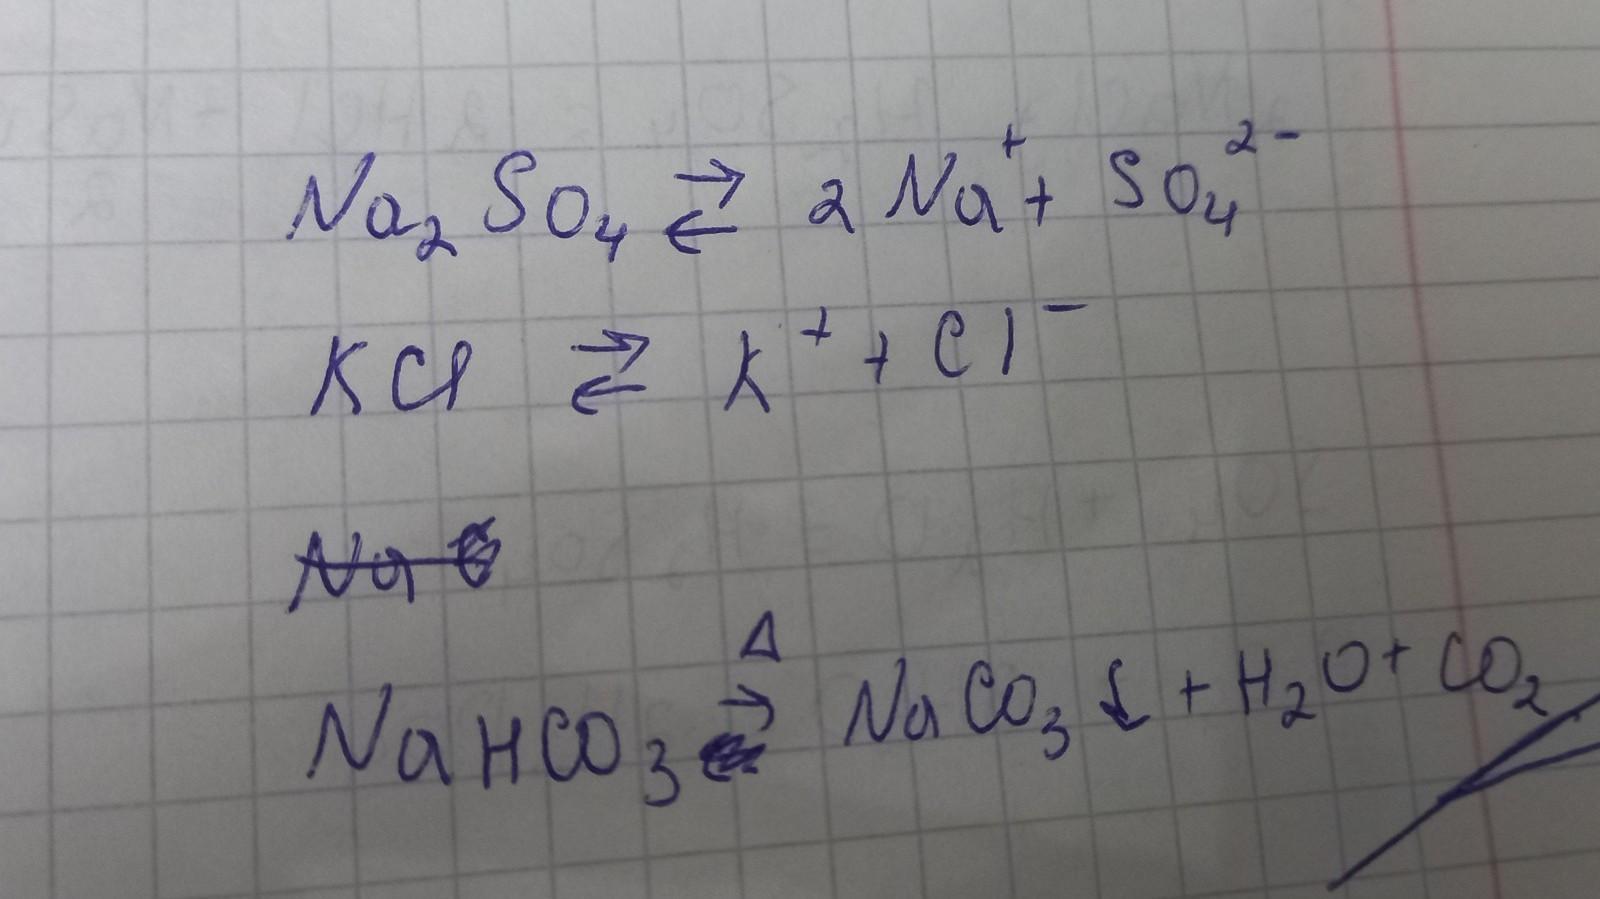 Na₂SO₄ ⇄ 2Na⁺ + SO₄²⁻
KCl ⇄ K⁺ + Cl⁻
Na
Δ
NaHCO₃ → NaCO₃↓ + H₂O + CO₂